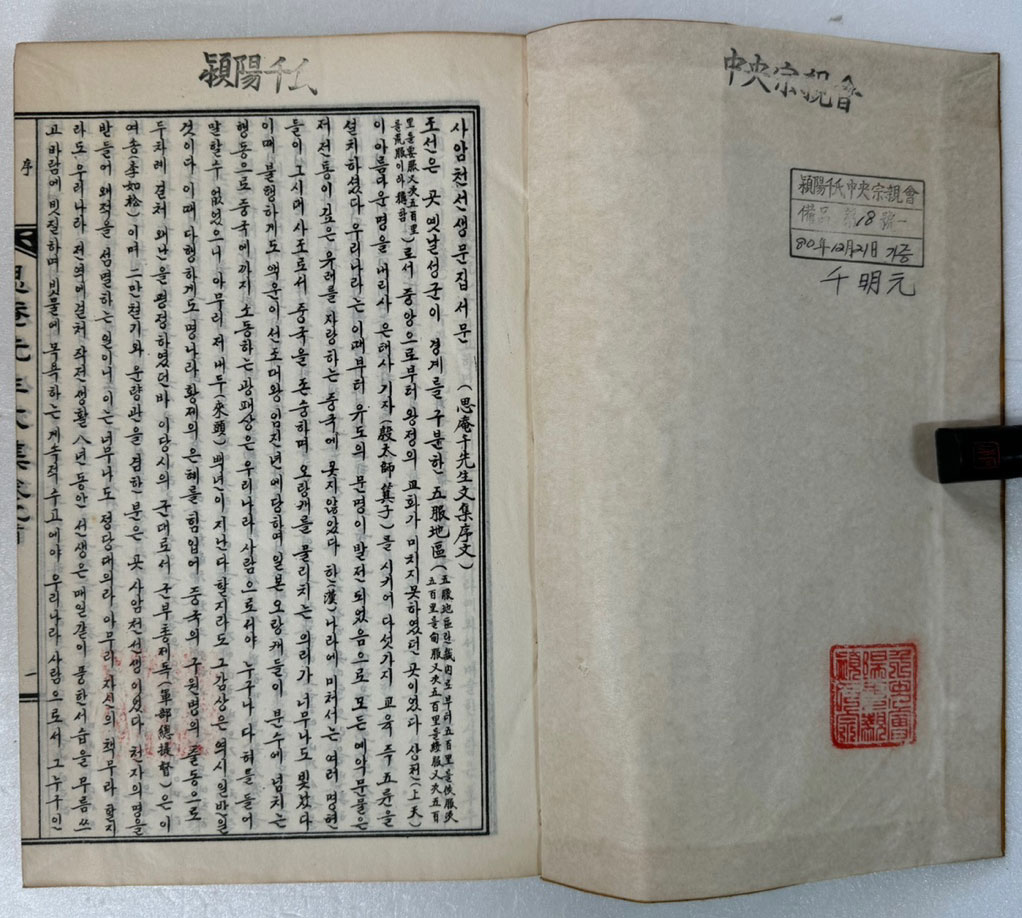 中央宗親會
潁陽千氏中央宗親會
備品 第18號
80年12月21日 기증
千明元
潁陽千氏
사암천선생문집서문 (思庵千先生文集序文)
조선은 곳 옛날성군이 경계를 구분한 五服地區(五服地區란 畿內로부터 五百里를 侯服又次
五百里를 甸服又次五百里를 綏服又次五百
里를 要服又次五百里
를 荒服이라 稱함)로서 중앙으로부터 왕정의 교화가 미치지못하였던 곳이였다 상천(上天)
이 아름다운명을 내리사 은태사 기자(殷太師箕子)를 시키어 다섯가지 교육 즉 五륜을
설치하셨다 우리나라는 이때부터 유도의 문명이 발전되었음으로 모든 예악문물은
저전통이 깊은 유래를 자랑하는 중국에 못지않았다 하(漢)나라에 미처서는 여러 명현
들이 그시대 사조로서 중국을 존숭하며 오랑캐를 물리치는 의리가 너무나도 빛났다
이때 불행하게도 액운이 선조대왕 임진년에당하여 일본 오랑캐들이 분수에 넘치는
행동으로 중국에까지 소동하는 광패상은 우리나라 사람으로서야 누구나 다 혀를 들어
말할수 없었으니 아무리 저 내두(來頭) 백년이 지난다 할지라도 그감상은 역시 일반일
것이다 이때 다행하게도 명나라 황제의 은혜를 힘입어 중국의 구원병의 출동으로
두차례 걸처 왜난을 평정하였던바 이당시의 군대로서 군부총제독(軍部總提督)은 이
여송(李如松)이며 二만천기와 운량관을 겸한분은 곳 사암천선생이였다 천자의 명을
받들어 왜적을 섬멸하는 일이니 이는 너무나도 정당대의라 아무리 자신의 책무라 할지
라도 우리나라 전역에걸처 작전생활 八년동안 선생은 매일같이 풍한서습을 무릅쓰
고 바람에 빗질하며 빗물에 목욕하는 계속적 수고에야 우리나라 사람으로서 그누구인
序
一